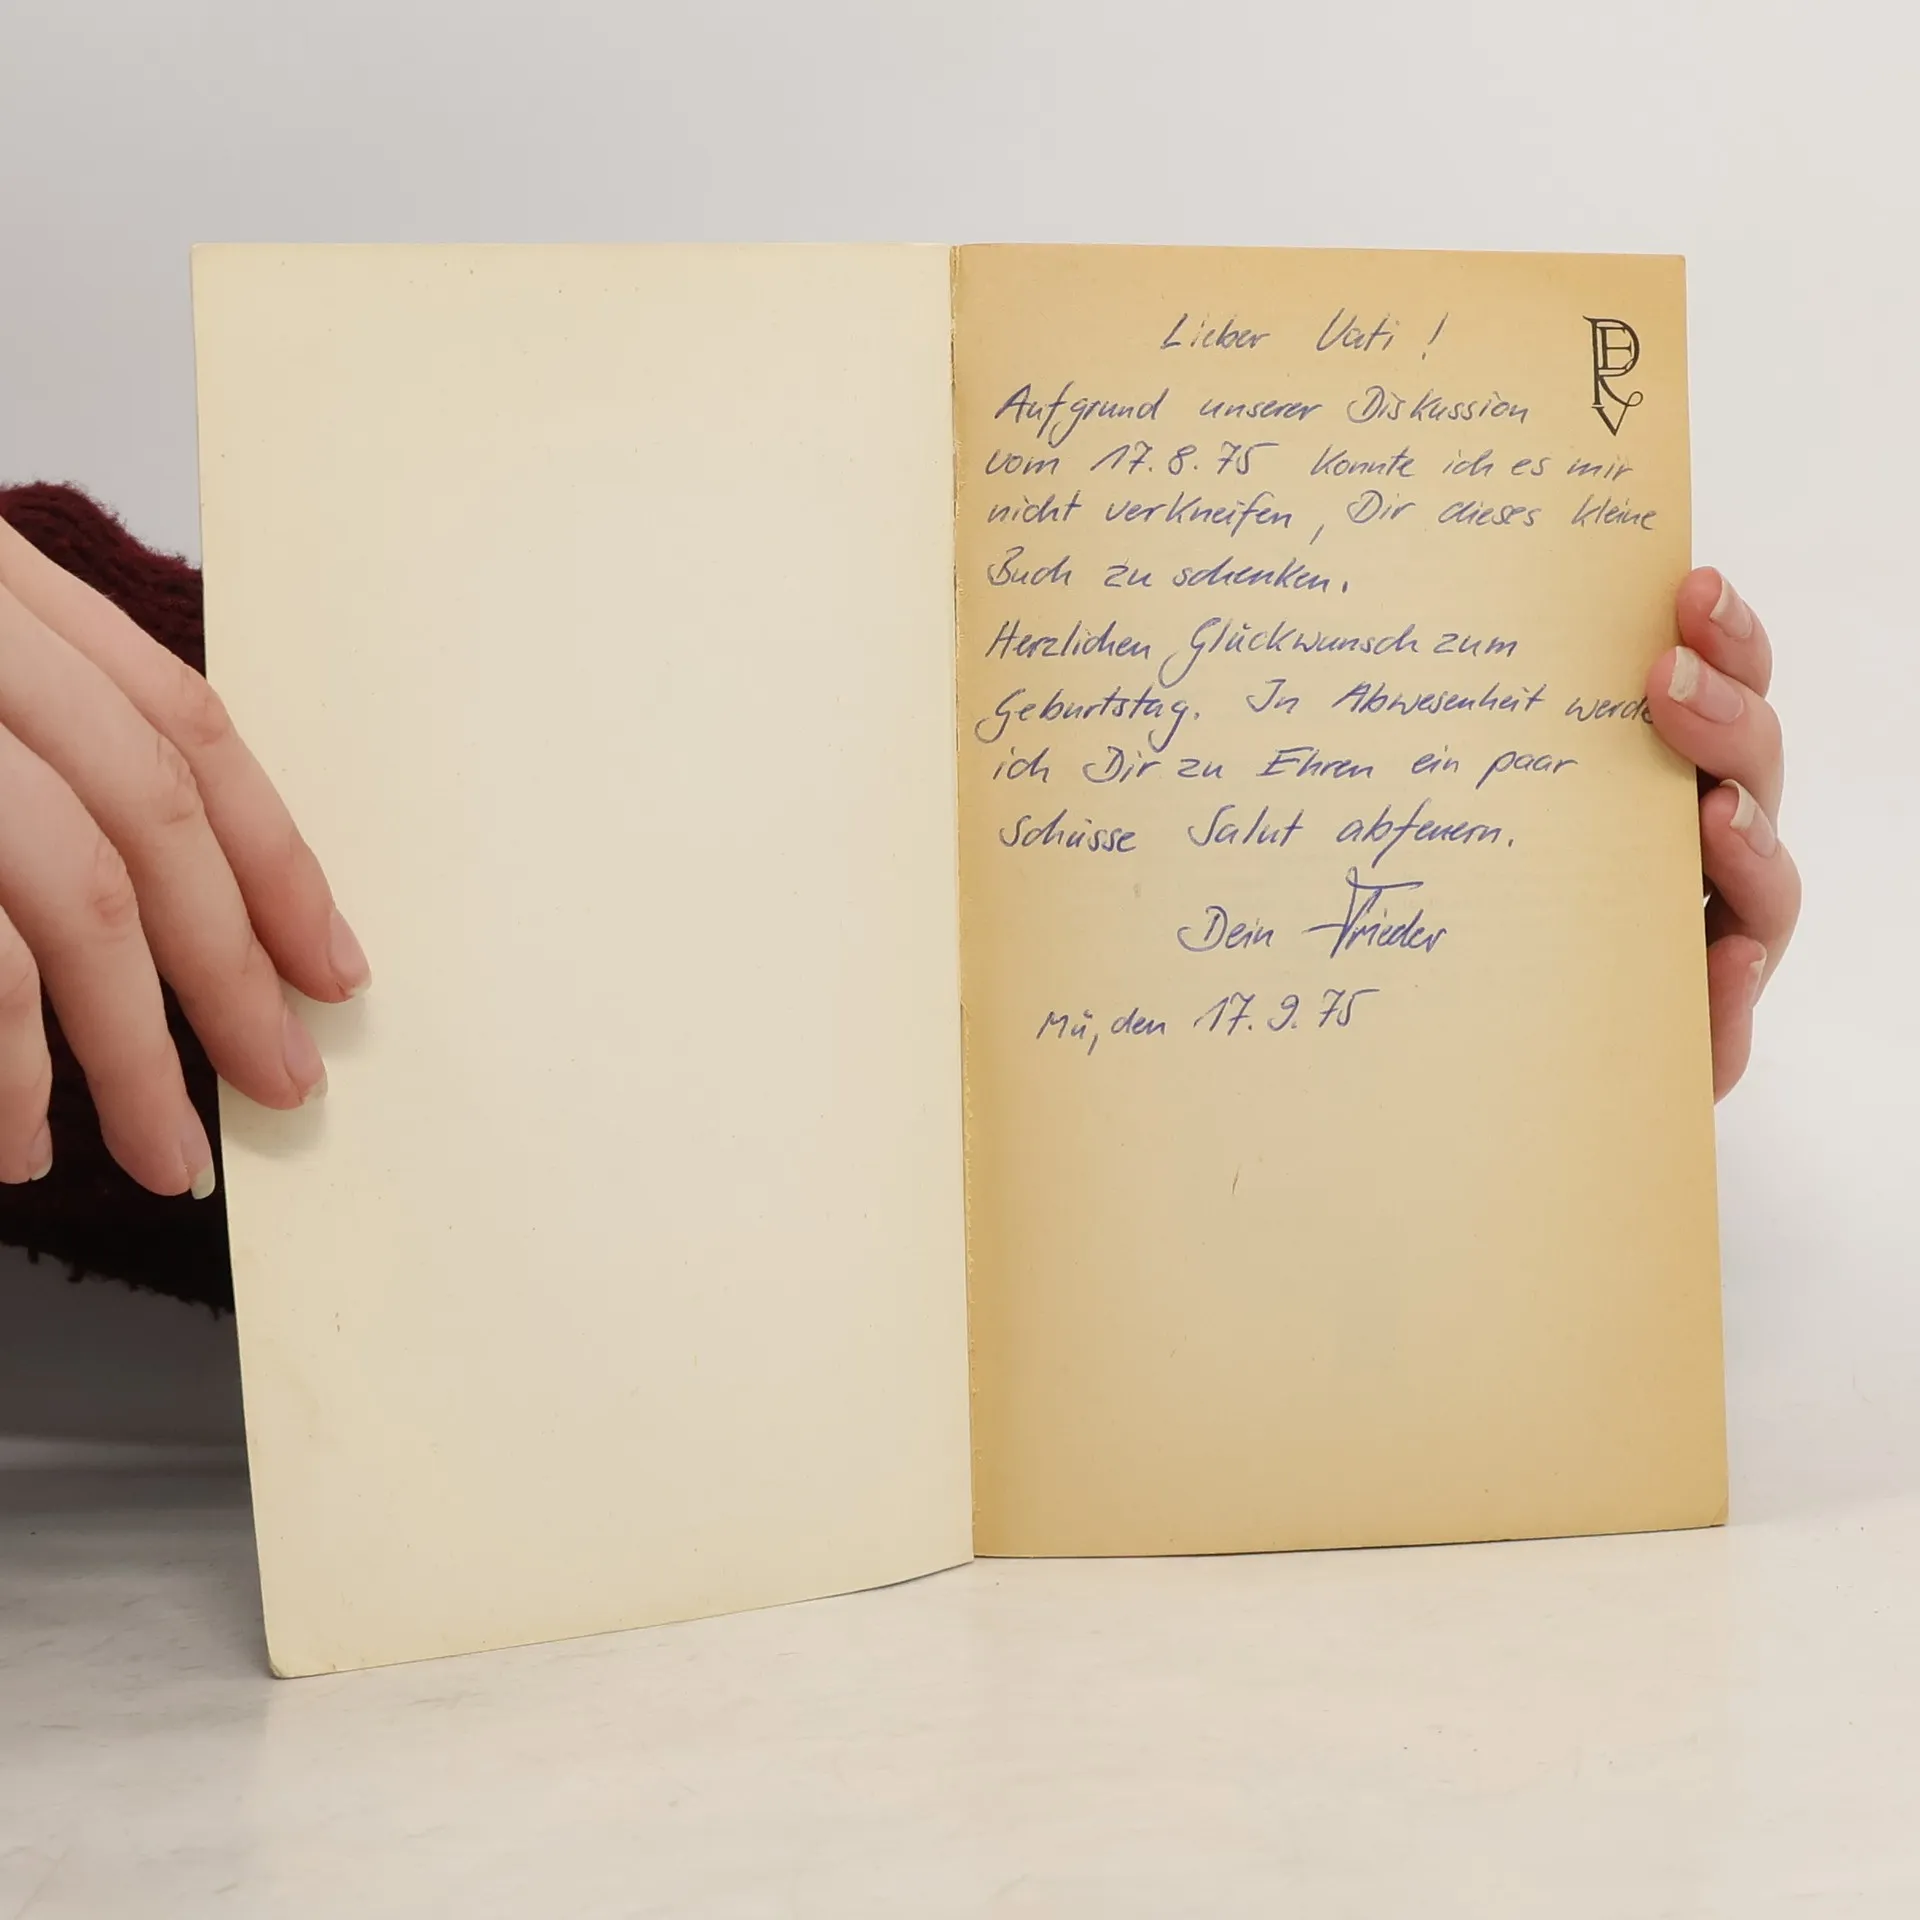 Lieber Vati !
Aufgrund unserer Diskussion
vom 17. 8. 75 konnte ich es mir
nicht verkneifen, Dir dieses kleine
Buch zu schenken.
Herzlichen Glückwunsch zum
Geburtstag. In Abwesenheit werde
ich Dir zu Ehren ein paar
Schüsse Salut abfeuern.
Dein Frieder
Mü, den 17. 9. 75